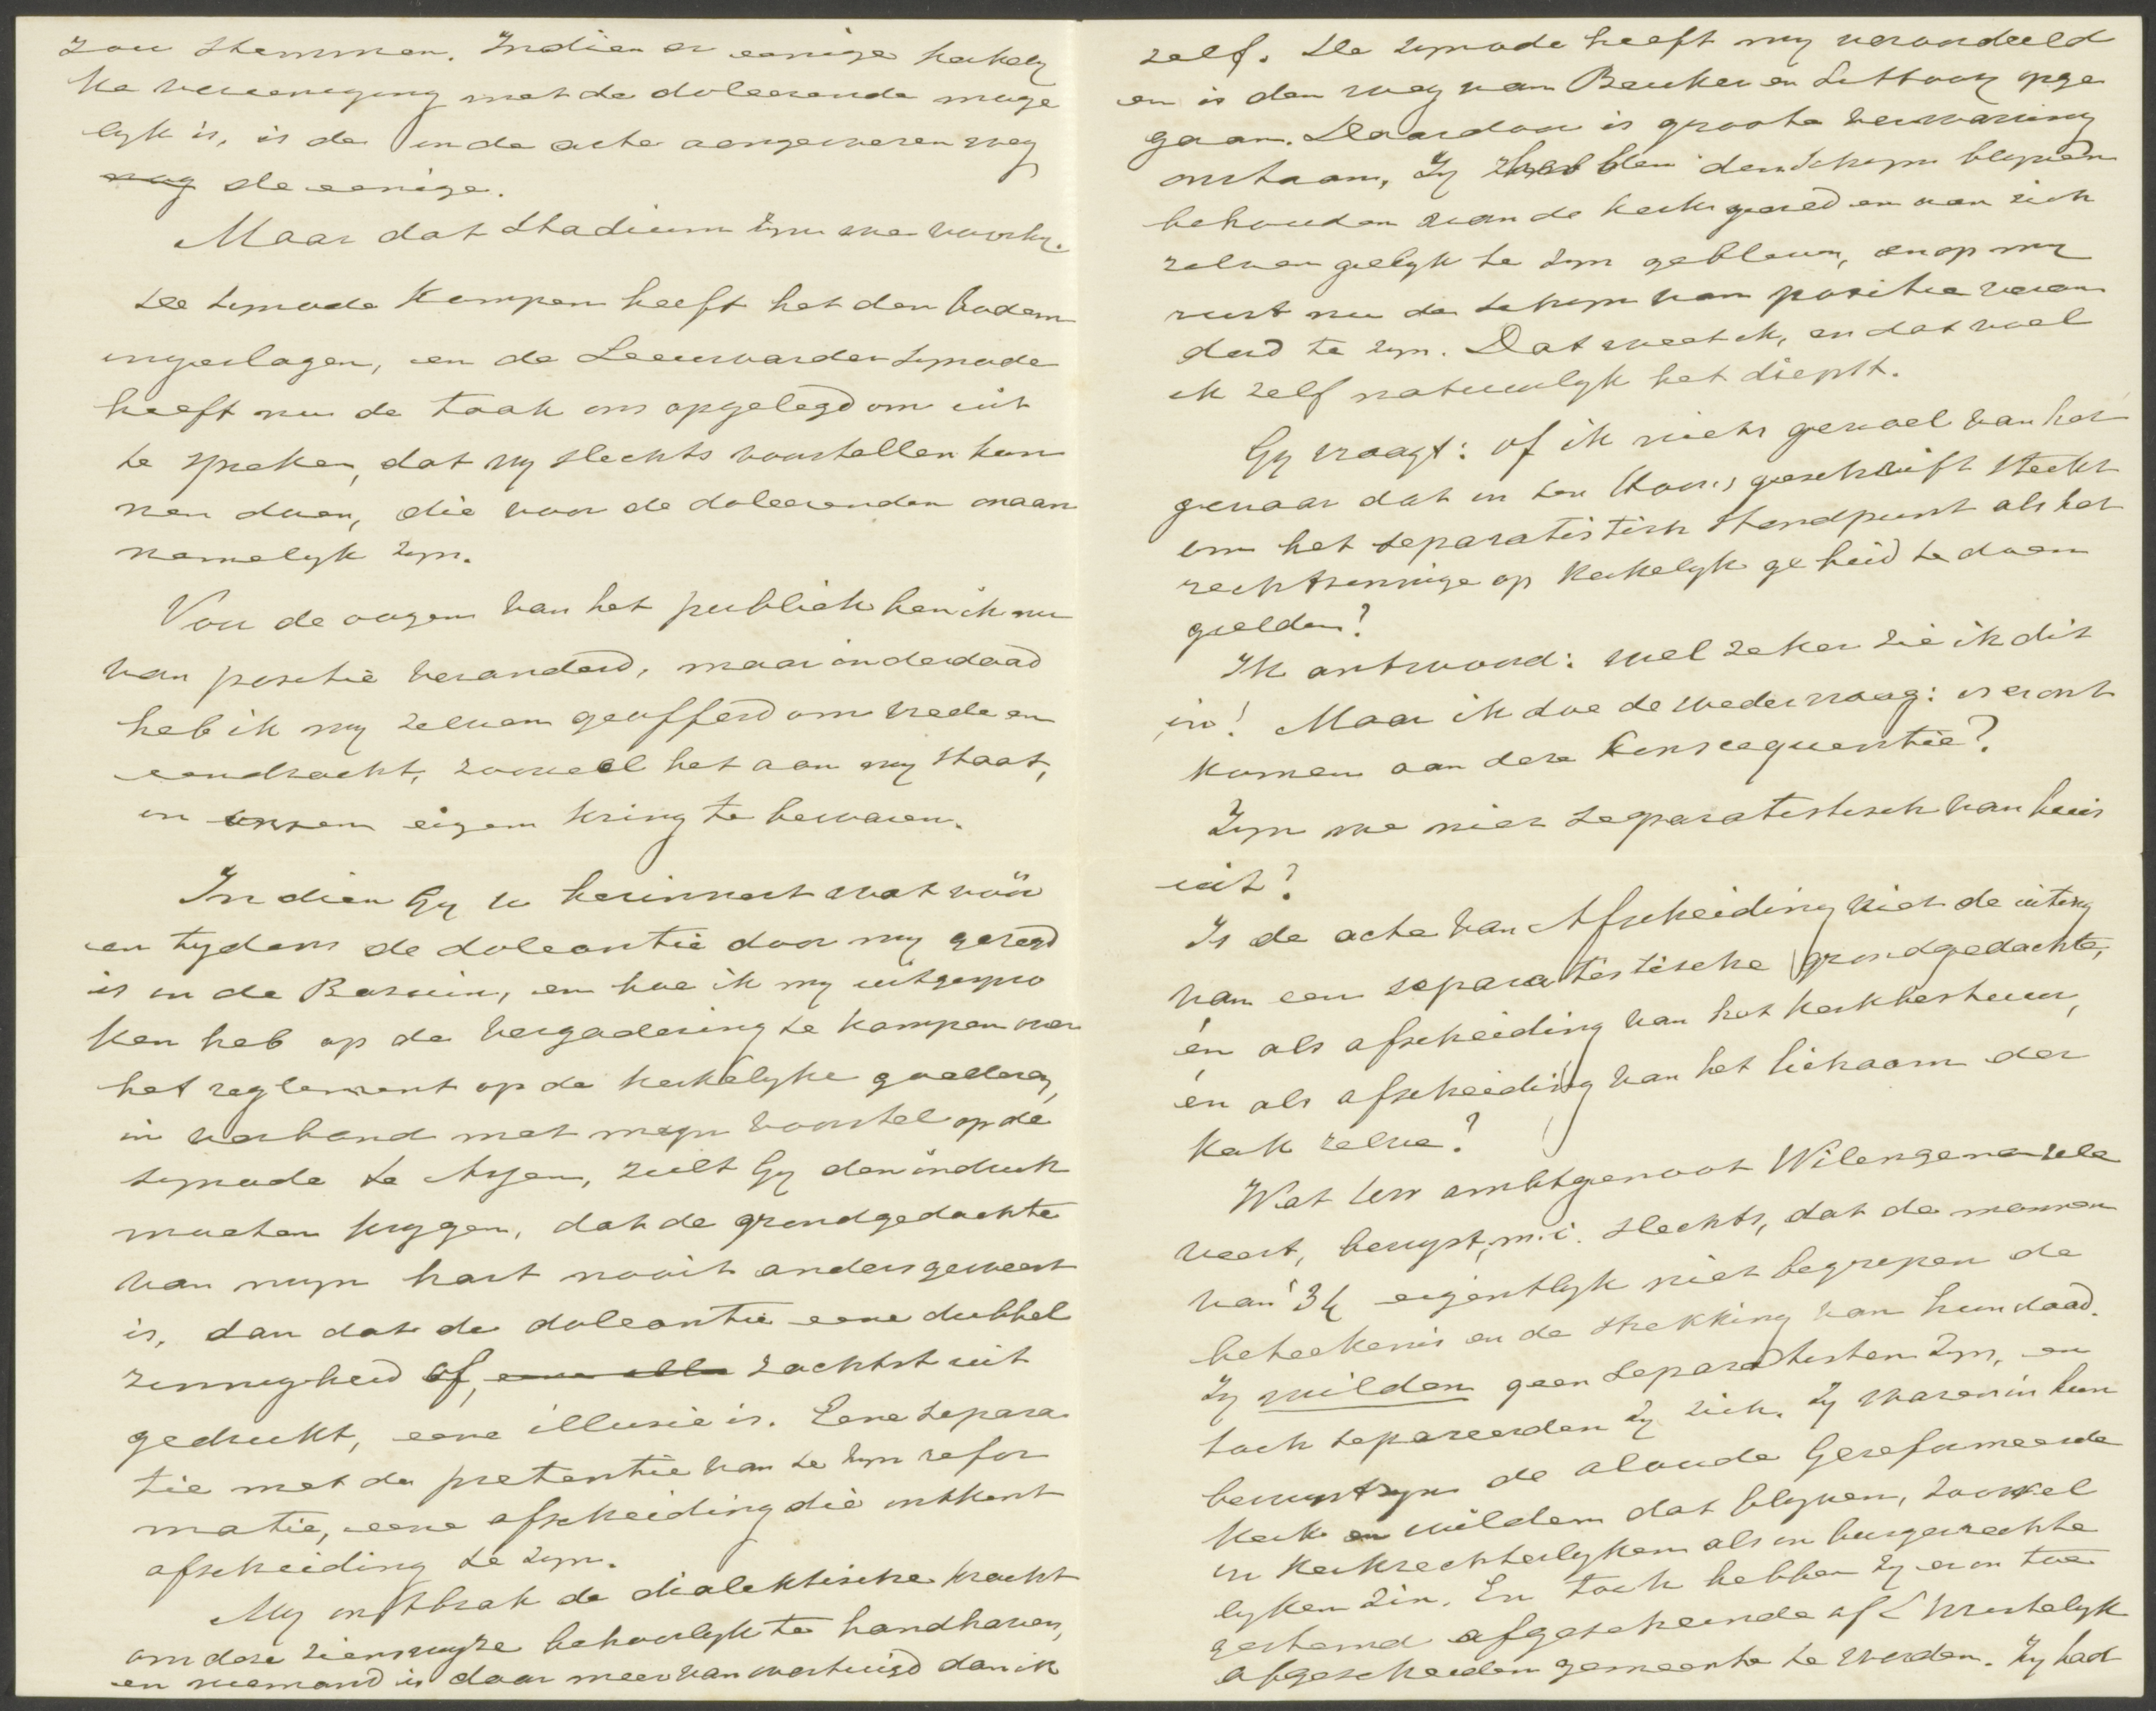 zou stemmen. Indien er eenige kerkely
ke vereeniging met de doleerende moge
lyk is, is de in de acte aangewezen weg
nog de eenige.
Maar dat stadium zyn we voorby.
De synode Kampen heeft het den bodem
ingeslagen, en de Leeuwarder synode
heeft nu de taak ons opgelegd om uit
te spreken, dat wy slechts voorstellen kun
nen doen, die voor de doleerenden onaan
nemelyk zyn.
Voor de oogen van het publiek ben ik nu
van positie veranderd, maar inderdaad
heb ik my zelven geofferd om vrede en
eendracht, zooveel het aan my staat,
in onzen eigen kring te bewaren.
Indien Gy u herinnert wat vóór
en tydens de doleantie door my gezegd
is in de Bazuin, en hoe ik my uitgespro
ken heb op de vergadering te Kampen over
het reglement op de kerkelyke goederen,
in verband met myn voorstel op de
synode te Assen, zult Gy den indruk
moeten krygen, dat de grondgedachte
van myn hart nooit anders geweest
is, dan dat de doleantie eene dubbel
zinnigheid of, zachtst uit
gedrukt, eene illusie is. Eene separa
tie met de pretentie van te zyn refor
matie, eene afscheiding die ontkent
afscheiding te zyn.
My ontbrak de dialektische kracht
om deze zienswyze behoorlyk te handhaven,
en niemand is daar meer van overtuigd dan ik
zelf. De synode heeft my veroordeeld
en is den weg van Beuker en Littooy opge
gaan. Daardoor is groote verwarring
ontstaan. Zy hebben den schyn blyven
behouden van de kerk gered en aan zich
zelven gelyk te zyn gebleven, en op my
rust nu de schyn van positie veran
derd te zyn. Dat weet ik, en dat voel
ik zelf natuurlyk het diepst.
Gy vraagt: of ik niets gevoel van het
gevaar dat in ten Hoors geschrift steekt
om het separatistisch standpunt als het
rechtzinnige op kerkelyk gebied te doen
gelden?
Ik antwoord: wel zeker zie ik dit
in! Maar ik doe de wedervraag: is er ont
komen aan deze konsequentie?
Zyn we niet separatistisch van huis
uit?
Is de acte van Afscheiding niet de uiting
van een separatistische grondgedachte,
én als afscheiding van het kerkbestuur,
én als afscheiding van het lichaam der
kerk zelve?
Wat uw ambtgenoot Wilengenareele
veert, bewyst, m.i. slechts, dat de mannen
van '34 eigentlyk niet begrepen de
beteekenis en de strekking van hun daad.
Zy wilden geen separatisten zyn, en
toch separeerden zy zich. Zy waren in hun
bewustzyn de aloude Gereformeerde
Kerk en wilden dat blyven, zoowel
in kerkrechterlyken als in burgerrechte
lyken zin. En toch hebben zy er in toe
gestemd afgescheidene of Christelyk
afgescheiden gemeente te worden. Zy had